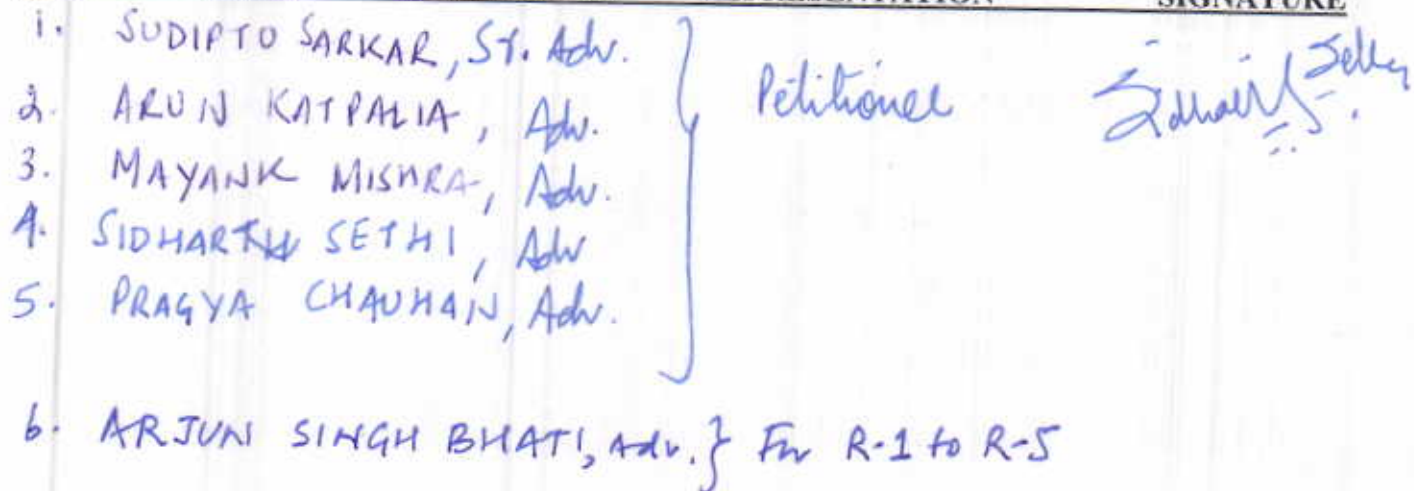 SIGNATURE
1. SUDIPTO SARKAR, Sr. Adv.
2. ARUN KATPALIA, Adv. Petitioner
3. MAYANK MISHRA, Adv.
4. SIDHARTH SETHI, Adv
5. PRAGYA CHAUHAN, Adv.
6. ARJUN SINGH BHATI, Adv. } For R-1 to R-5